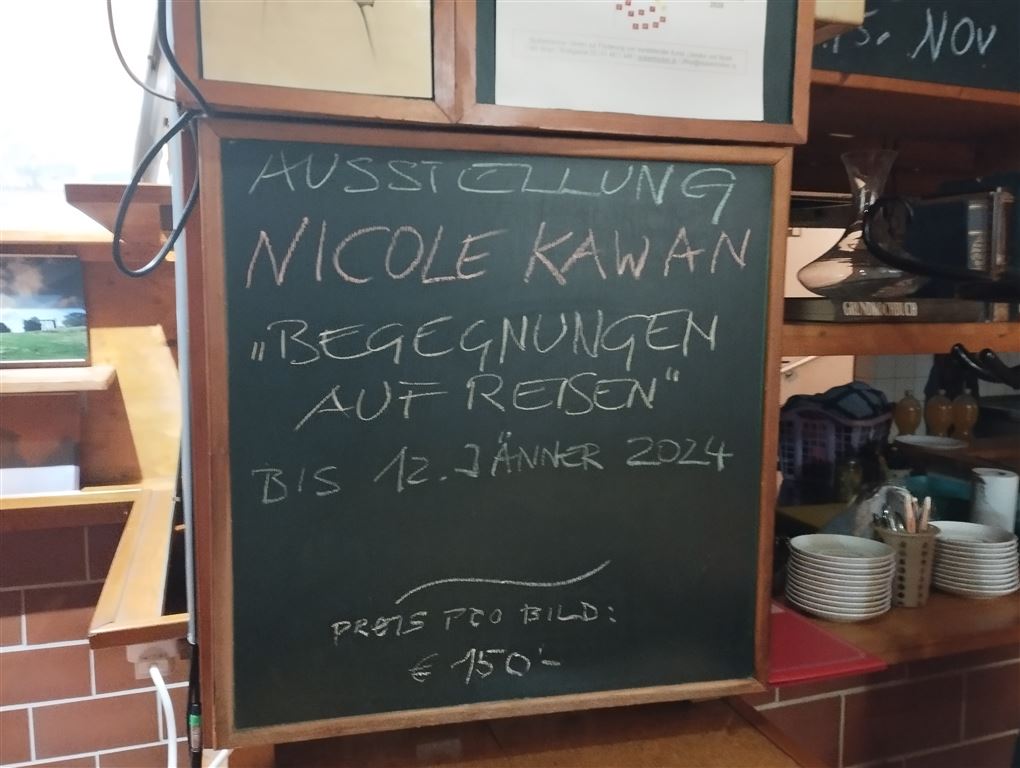 15. NOV
AUSSTELLUNG
NICOLE KAWAN
„BEGEGNUNGEN
AUF REISEN"
BIS 12. JÄNNER 2024
PREIS PRO BILD:
€ 150'-